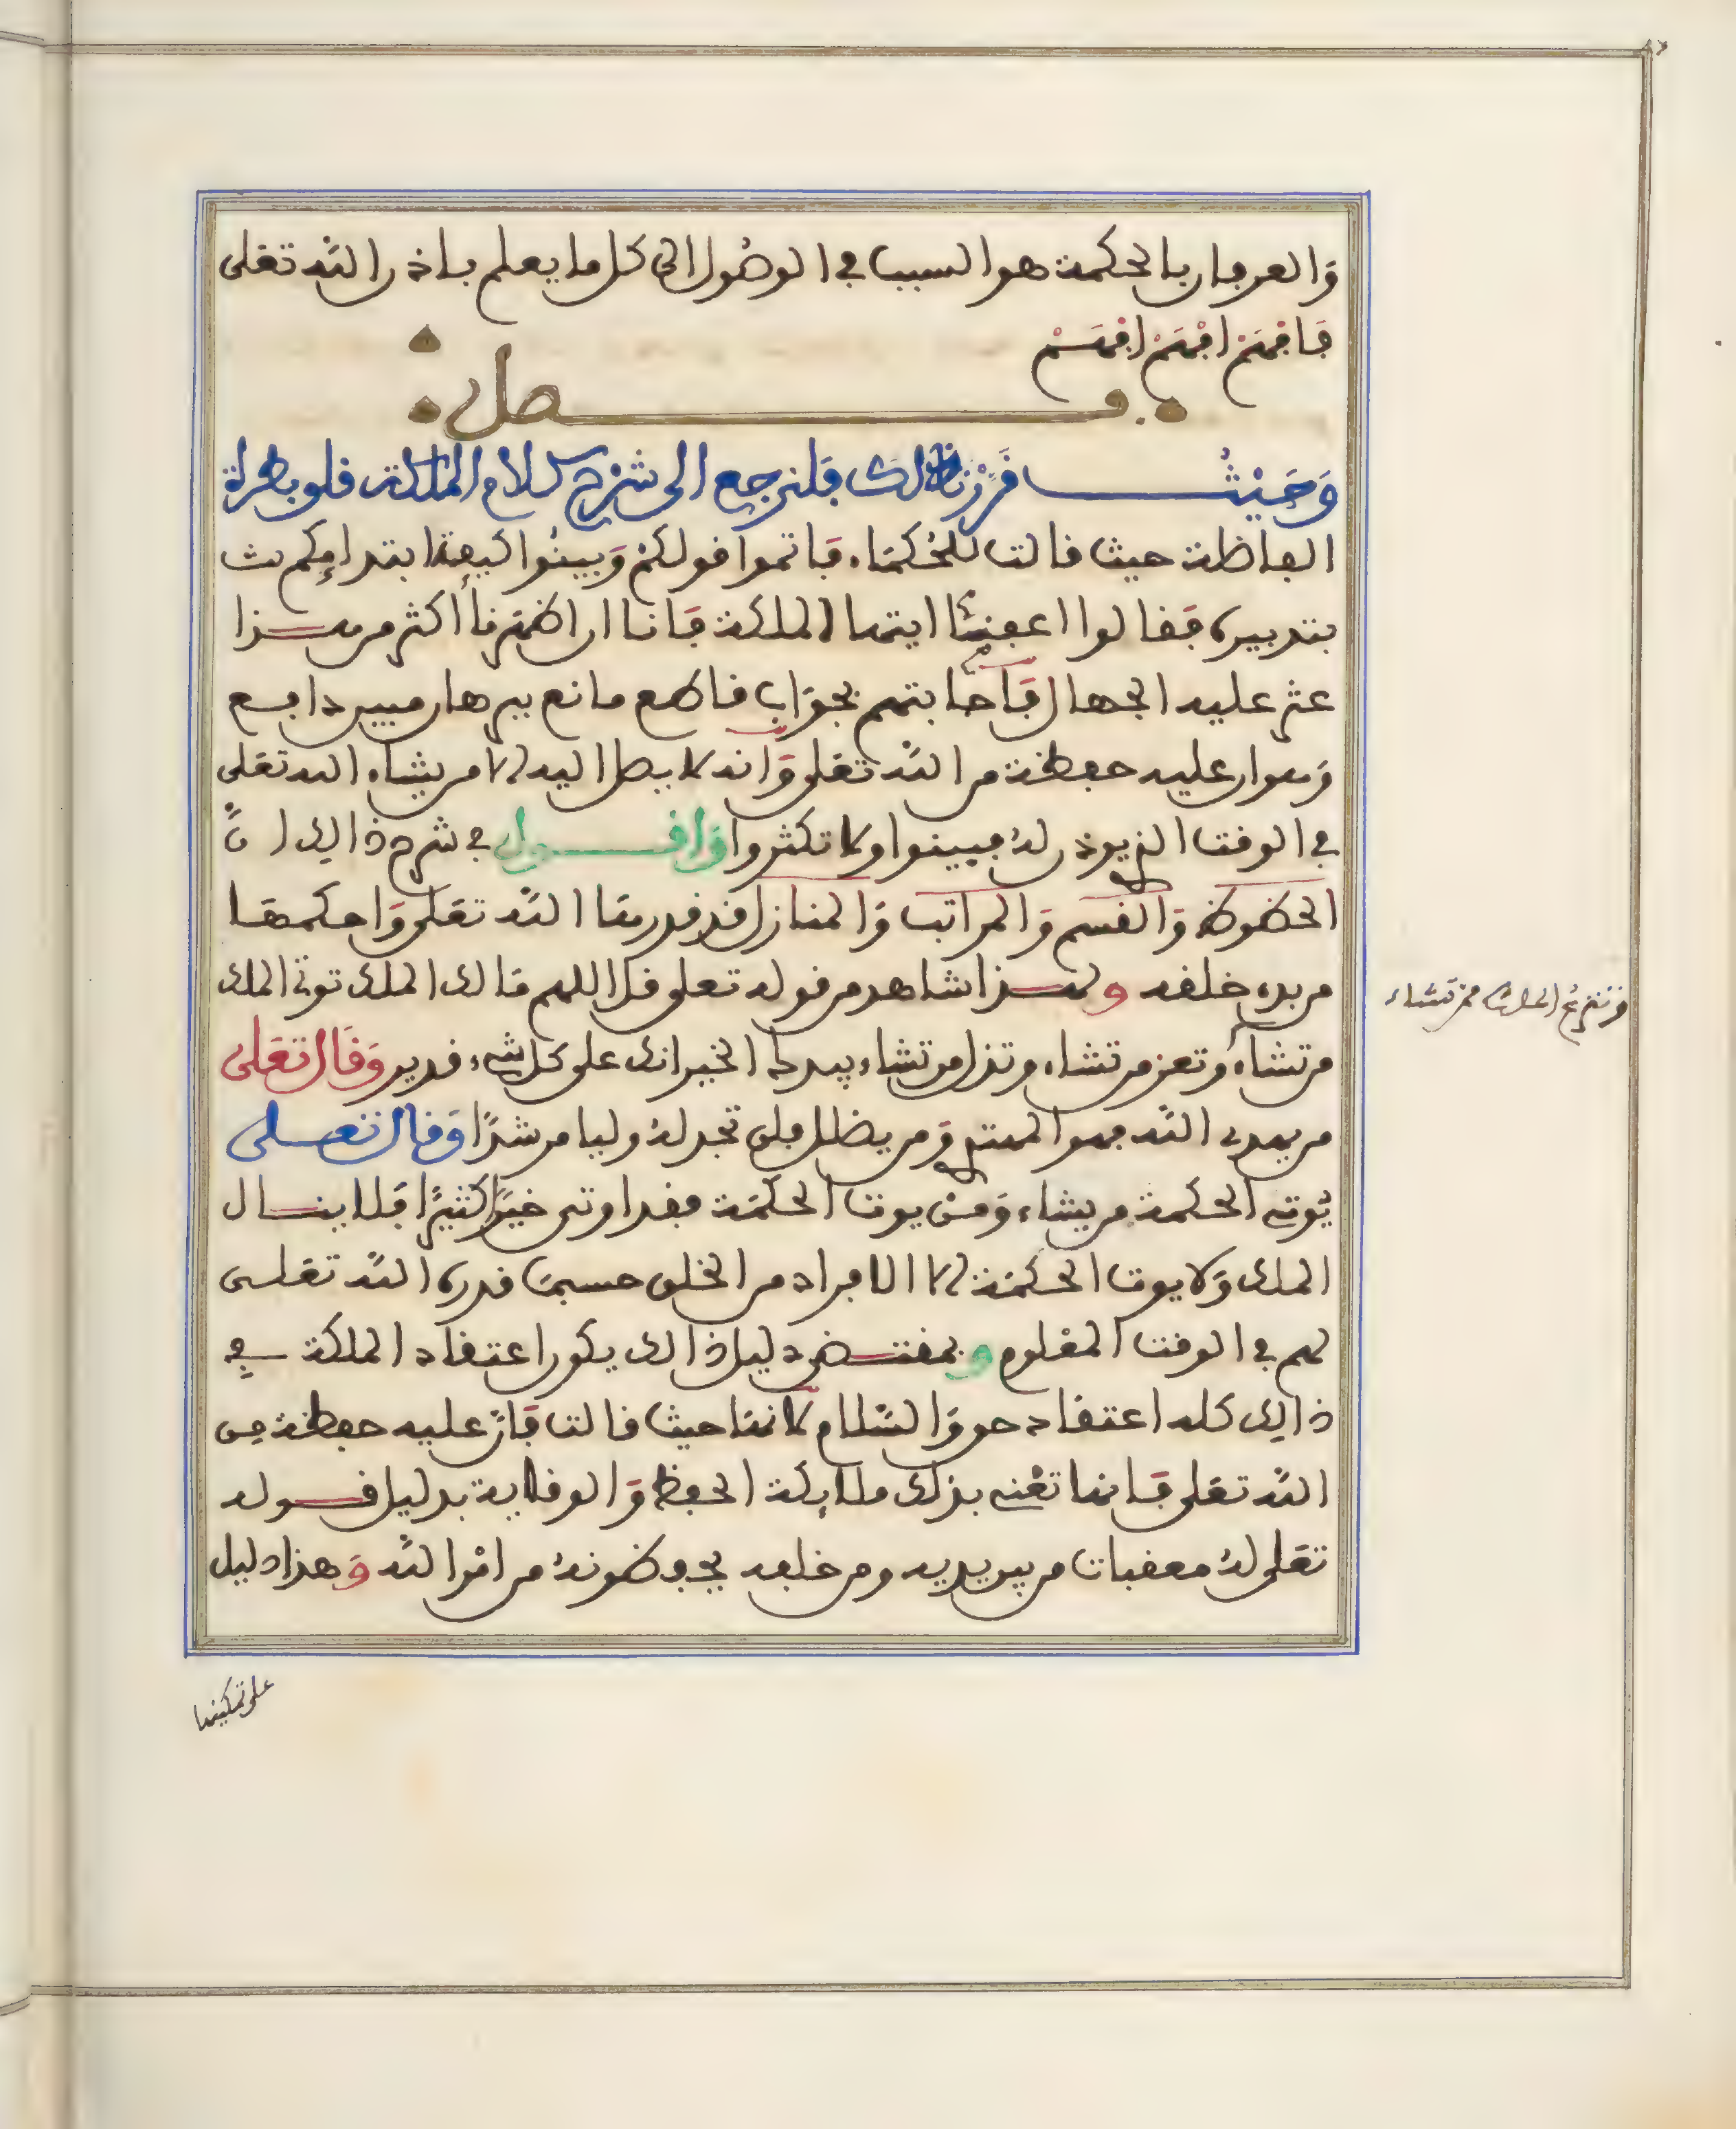 والعرفان بالحكمة هو السبب في الوصول الى كل ما يعلم باذن الله تعلى
فافهم افهم افهم
فصل
وحيث قررنا ذلك فلنرجع الى شرح كلام الملكة قلوبطرة
الفاظلة حيث قالت للحكماء فاتموا قولكم وبينوا كيفية ابتدايكم ثم
بتدبيره فقالوا اعفينا ايتها الملكة فانا ان اظهرنا أكثر من هذا
عثر عليه الجهال فأجابتهم بجواب قاطع مانع ببرهان مبين دافع
وهو ان عليه حفظة من الله تعلى وانه لا يصل اليه الا من يشاء الله تعلى
في الوقت الذي يوذن له فبينوا ولا تكثروا واقول في شرح ذالك ان
الحظوظ والقسم والمراتب والمنازل قد قدرها الله تعلى واحكمها
من بدء خلقه ولهذا شاهد من قوله تعلى قل اللهم مالك الملك توتي الملك
من تشاء وتعز من تشاء وتذل من تشاء بيدك الخير انك على كل شيء قدير وقال تعلى
من يهدى الله فهو المهتدي ومن يضلل فلن تجد له وليا مرشدا وقال تعلى
يوتي الحكمة من يشاء ومن يوت الحكمة فقد اوتي خيرا كثيرا فلا ينال
الملك ولا يوت الحكمة الا الافراد من الخلق حسبما قدره الله تعلى
لهم في الوقت المعلوم وبمقتضى دليل ذالك يكون اعتقاد الملكة في
ذالك كله اعتقاد حق والسلام لانها حيث قالت فان عليه حفظة من
الله تعلى فانها تعني بذلك ملائكة الحفظ والوقاية بدليل قوله
تعلى له معقبات من بين يديه ومن خلفه يحفظونه من امر الله وهذا دليل
وتنزع الملك ممن تشاء
على تمكينها